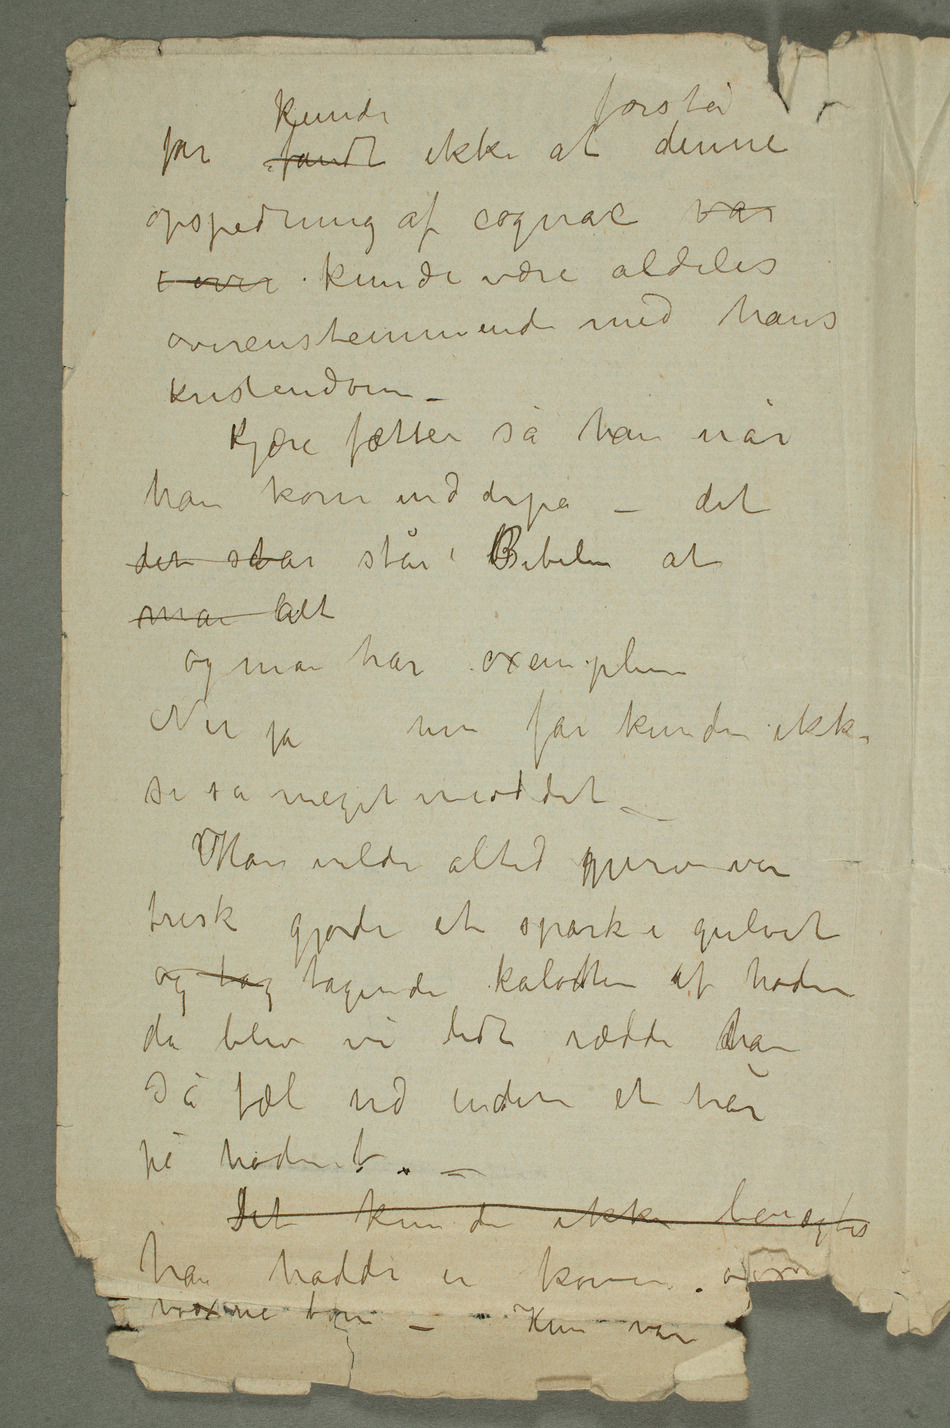 kunde forstå
far fandt ikke at denne
opspædning af cognac var
i over kunde være aldeles
overenstemmende med hans
kristendom –
Kjære fætter sa han når
han kom ind derpå – det
det star står i Bibelen at
man alt
og man har exempler
Nei ja men far kunde ikke
si så meget mod det –
Han vilde altid
trisk gjorde et spark i gulvet
og tag tagende kalotten af hodet
da blev vi lidt rædde han
så fæl ud uden et hår
på hodet. –
Det kunde ikke benægtes
han hadde en kone og
voxne børn – Hun var